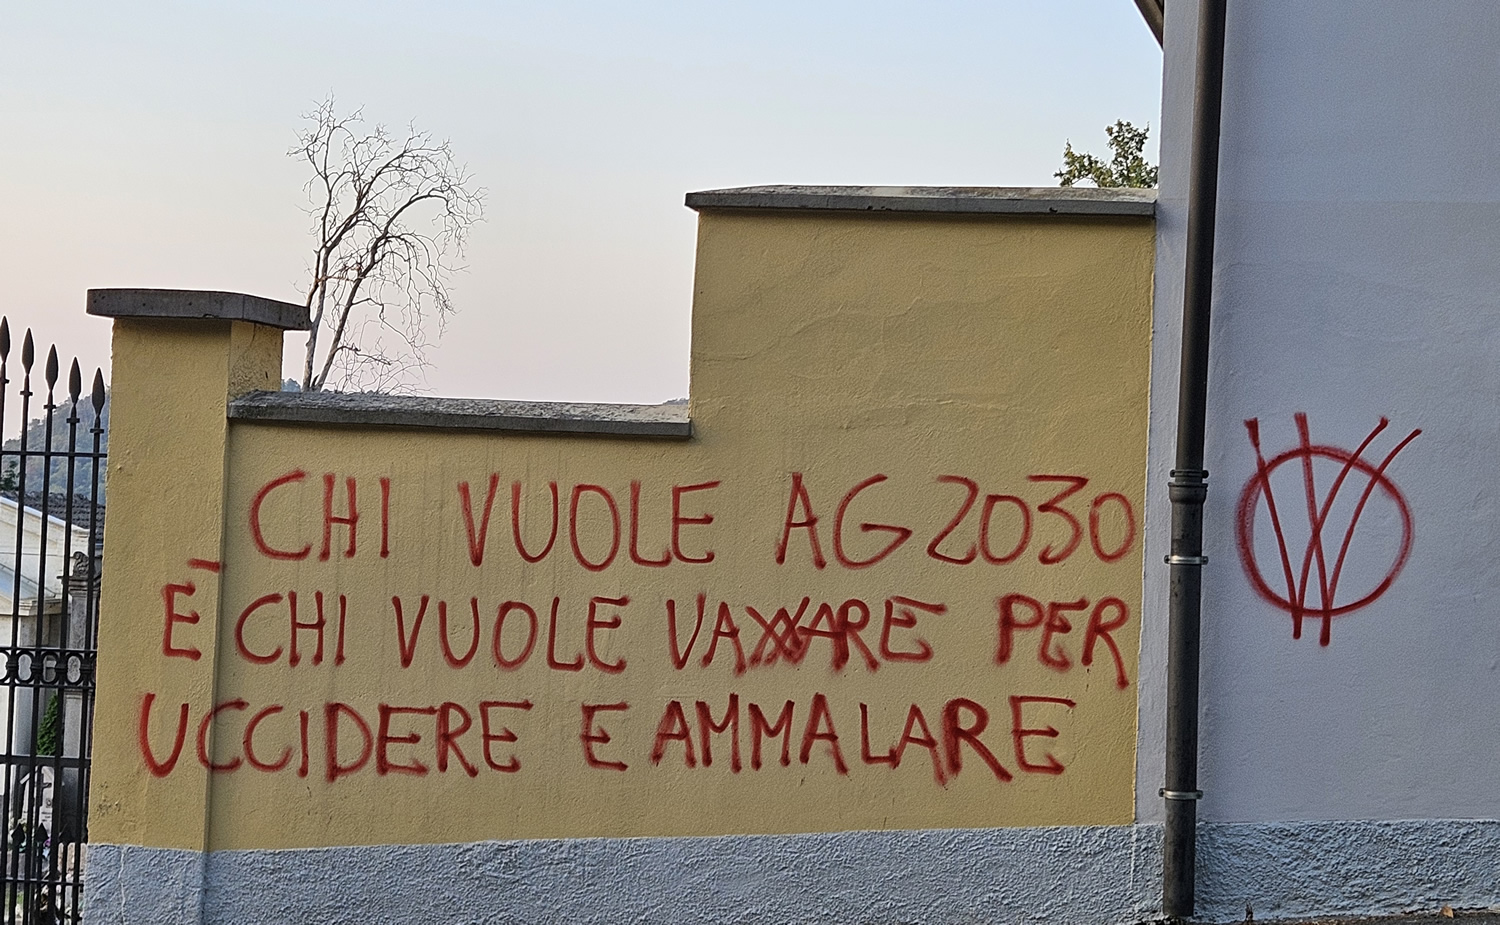 CHI VUOLE AG2030
È CHI VUOLE VAXXARE PER
UCCIDERE E AMMALARE
VV